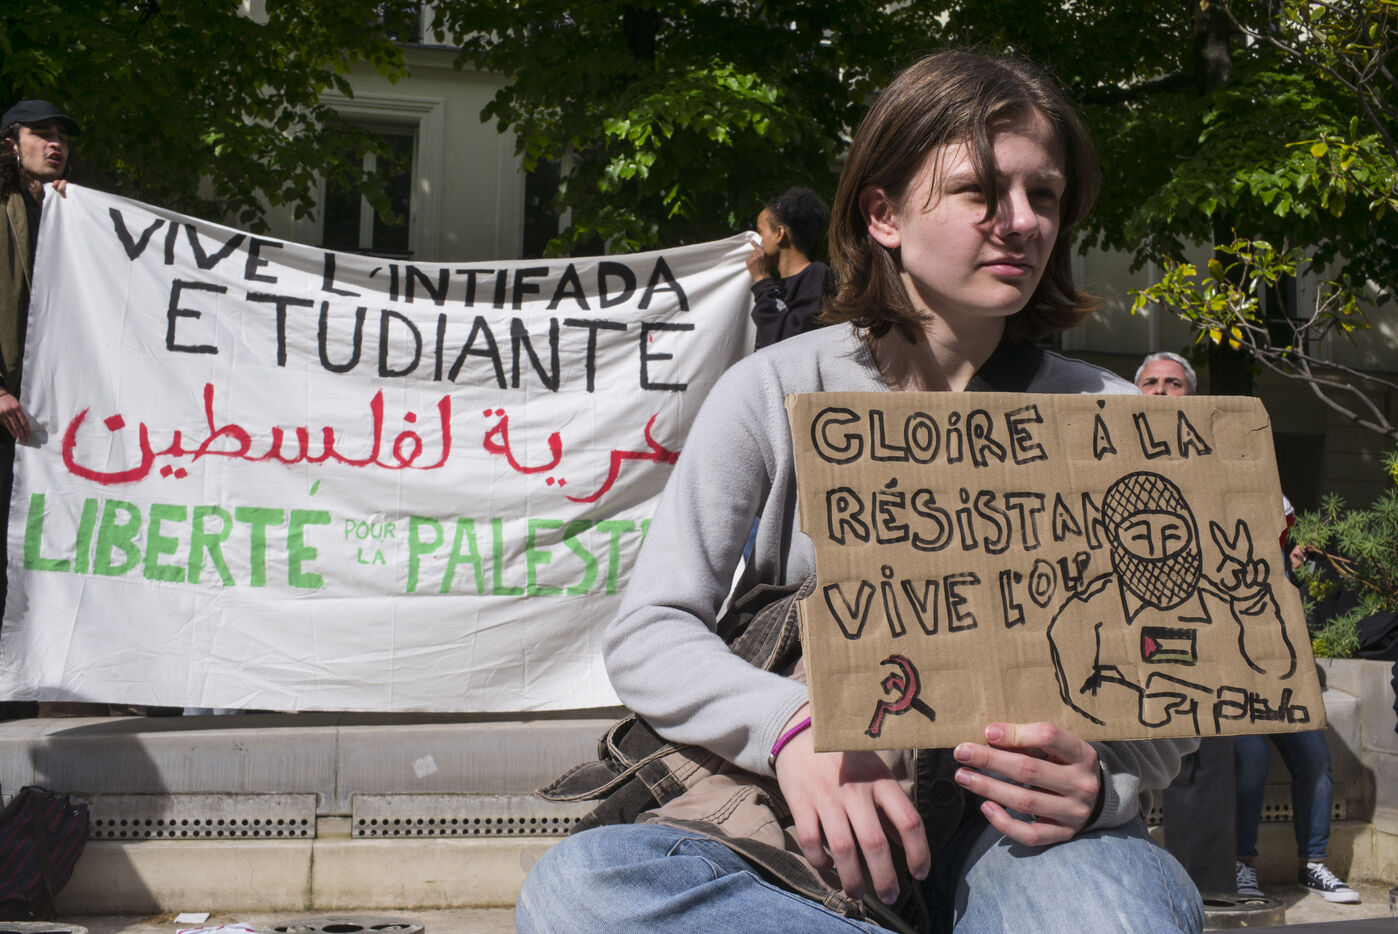 VIVE L'INTIFADA
ETUDIANTE
حرية لفلسطين
LIBERTÉ POUR LA PALEST
GLOIRE À LA
RÉSISTAN
VIVE L'OLP